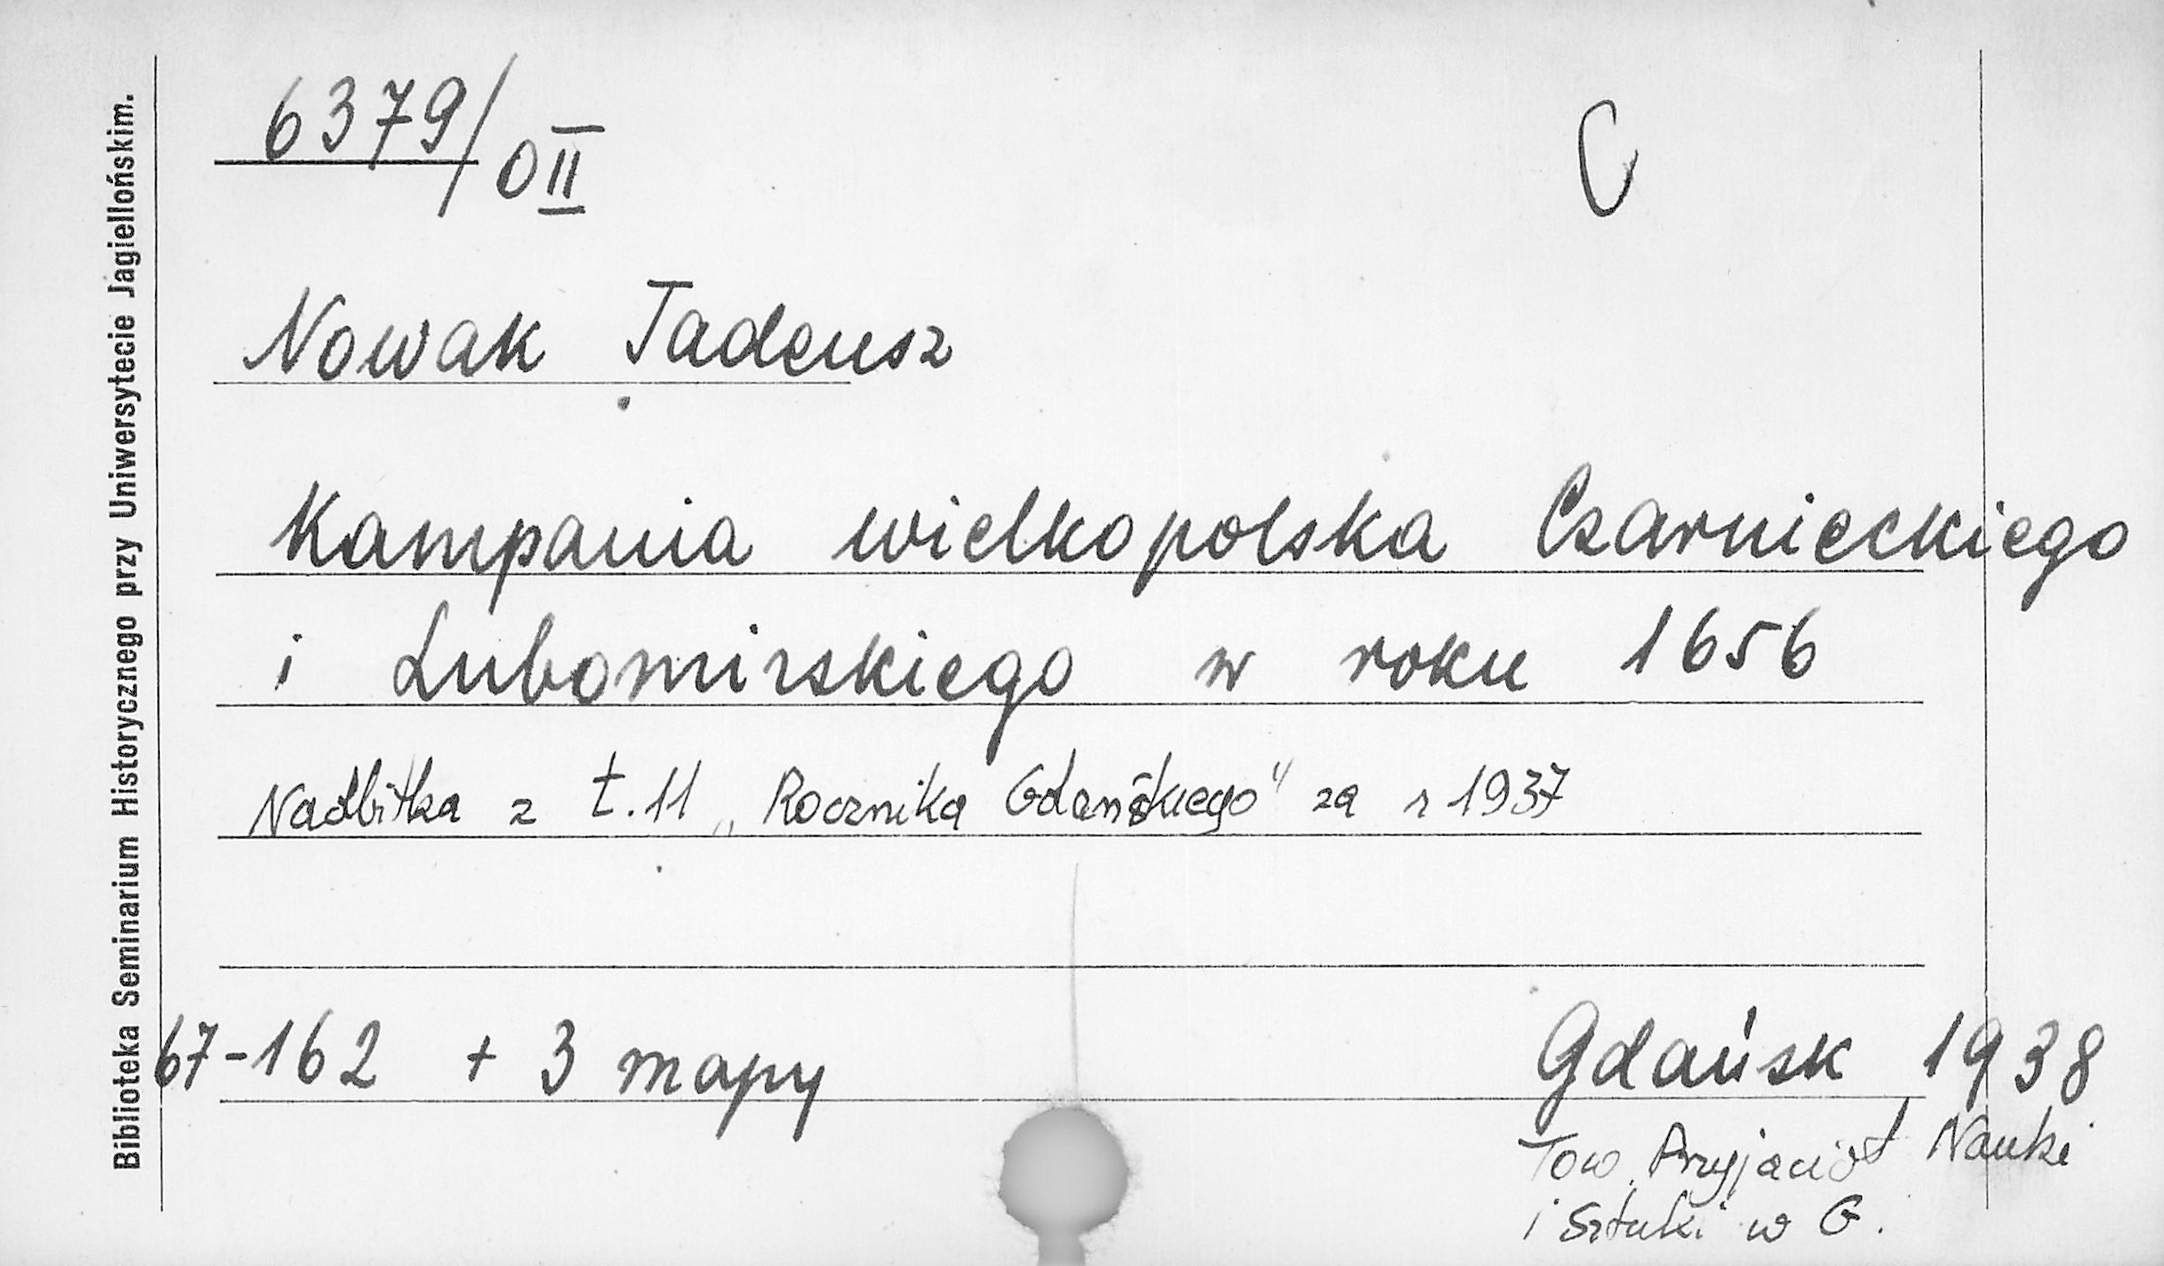 Biblioteka Seminarium Historycznego przy Uniwersytecie Jagiellońskim.
6379/0II
C
Nowak Tadeusz
Kampania wielkopolska Czarnieckiego
i Lubomirskiego w roku 1656
Nadbitka z t. 11 „Rocznika Gdańskiego" za r 1937
67-162 + 3 mapy
Gdańsk 1938
Tow. Przyjaciół Nauki
i Sztuki w G.